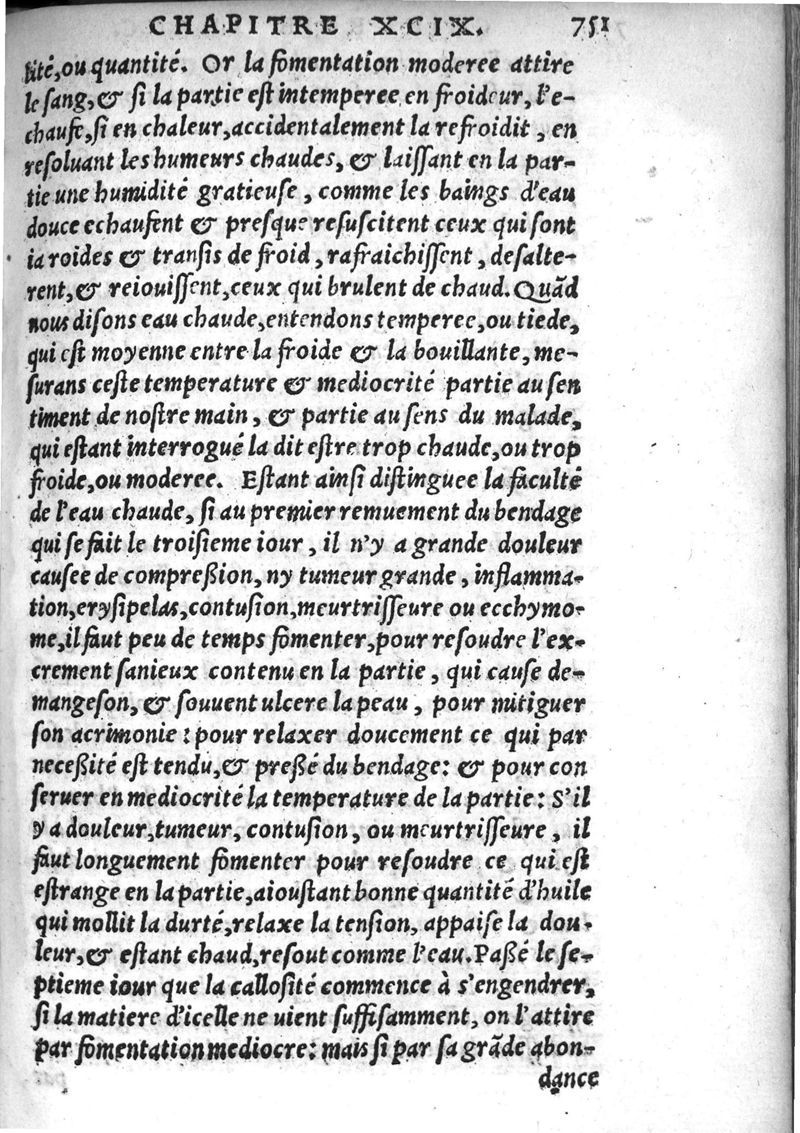 CHAPITRE XCIX. 751
tité, ou quantité. Or la fomentation moderee attire
le sang, & si la partie est intemperee en froideur, l'e-
chaufe, si en chaleur, accidentalement la refroidit, en
resoluant les humeurs chaudes, & laissant en la par-
tie une humidité gratieuse, comme les baings d'eau
douce echaufent & presque resuscitent ceux qui sont
ia roides & transis de froid, rafraichissent, desalte-
rent, & reiouissent, ceux qui brulent de chaud. Quãd
nous disons eau chaude, entendons temperee, ou tiede,
qui est moyenne entre la froide & la bouillante, me-
surans ceste temperature & mediocrité partie au sen
timent de nostre main, & partie au sens du malade,
qui estant interrogué la dit estre trop chaude, ou trop
froide, ou moderee. Estant ainsi distinguee la faculté
de l'eau chaude, si au premier remuement du bendage
qui se fait le troisieme iour, il n'y a grande douleur
causee de compreßion, ny tumeur grande, inflamma-
tion, erysipelas, contusion, meurtrisseure ou ecchymo-
me, il faut peu de temps fomenter, pour resoudre l'ex-
crement sanieux contenu en la partie, qui cause de-
mangeson, & souuent ulcere la peau, pour mitiguer
son acrimonie : pour relaxer doucement ce qui par
neceßité est tendu, & preßé du bendage: & pour con
seruer en mediocrité la temperature de la partie: S'il
y a douleur, tumeur, contusion, ou meurtrisseure, il
faut longuement fomenter pour resoudre ce qui est
estrange en la partie, aioustant bonne quantité d'huile
qui mollit la durté, relaxe la tension, appaise la dou-
leur, & estant chaud, resout comme l'eau. Paßé le se-
ptieme iour que la callosité commence à s'engendrer,
si la matiere d'icelle ne uient suffisamment, on l'attire
par fomentation mediocre: mais si par sa grãde abon-
dance